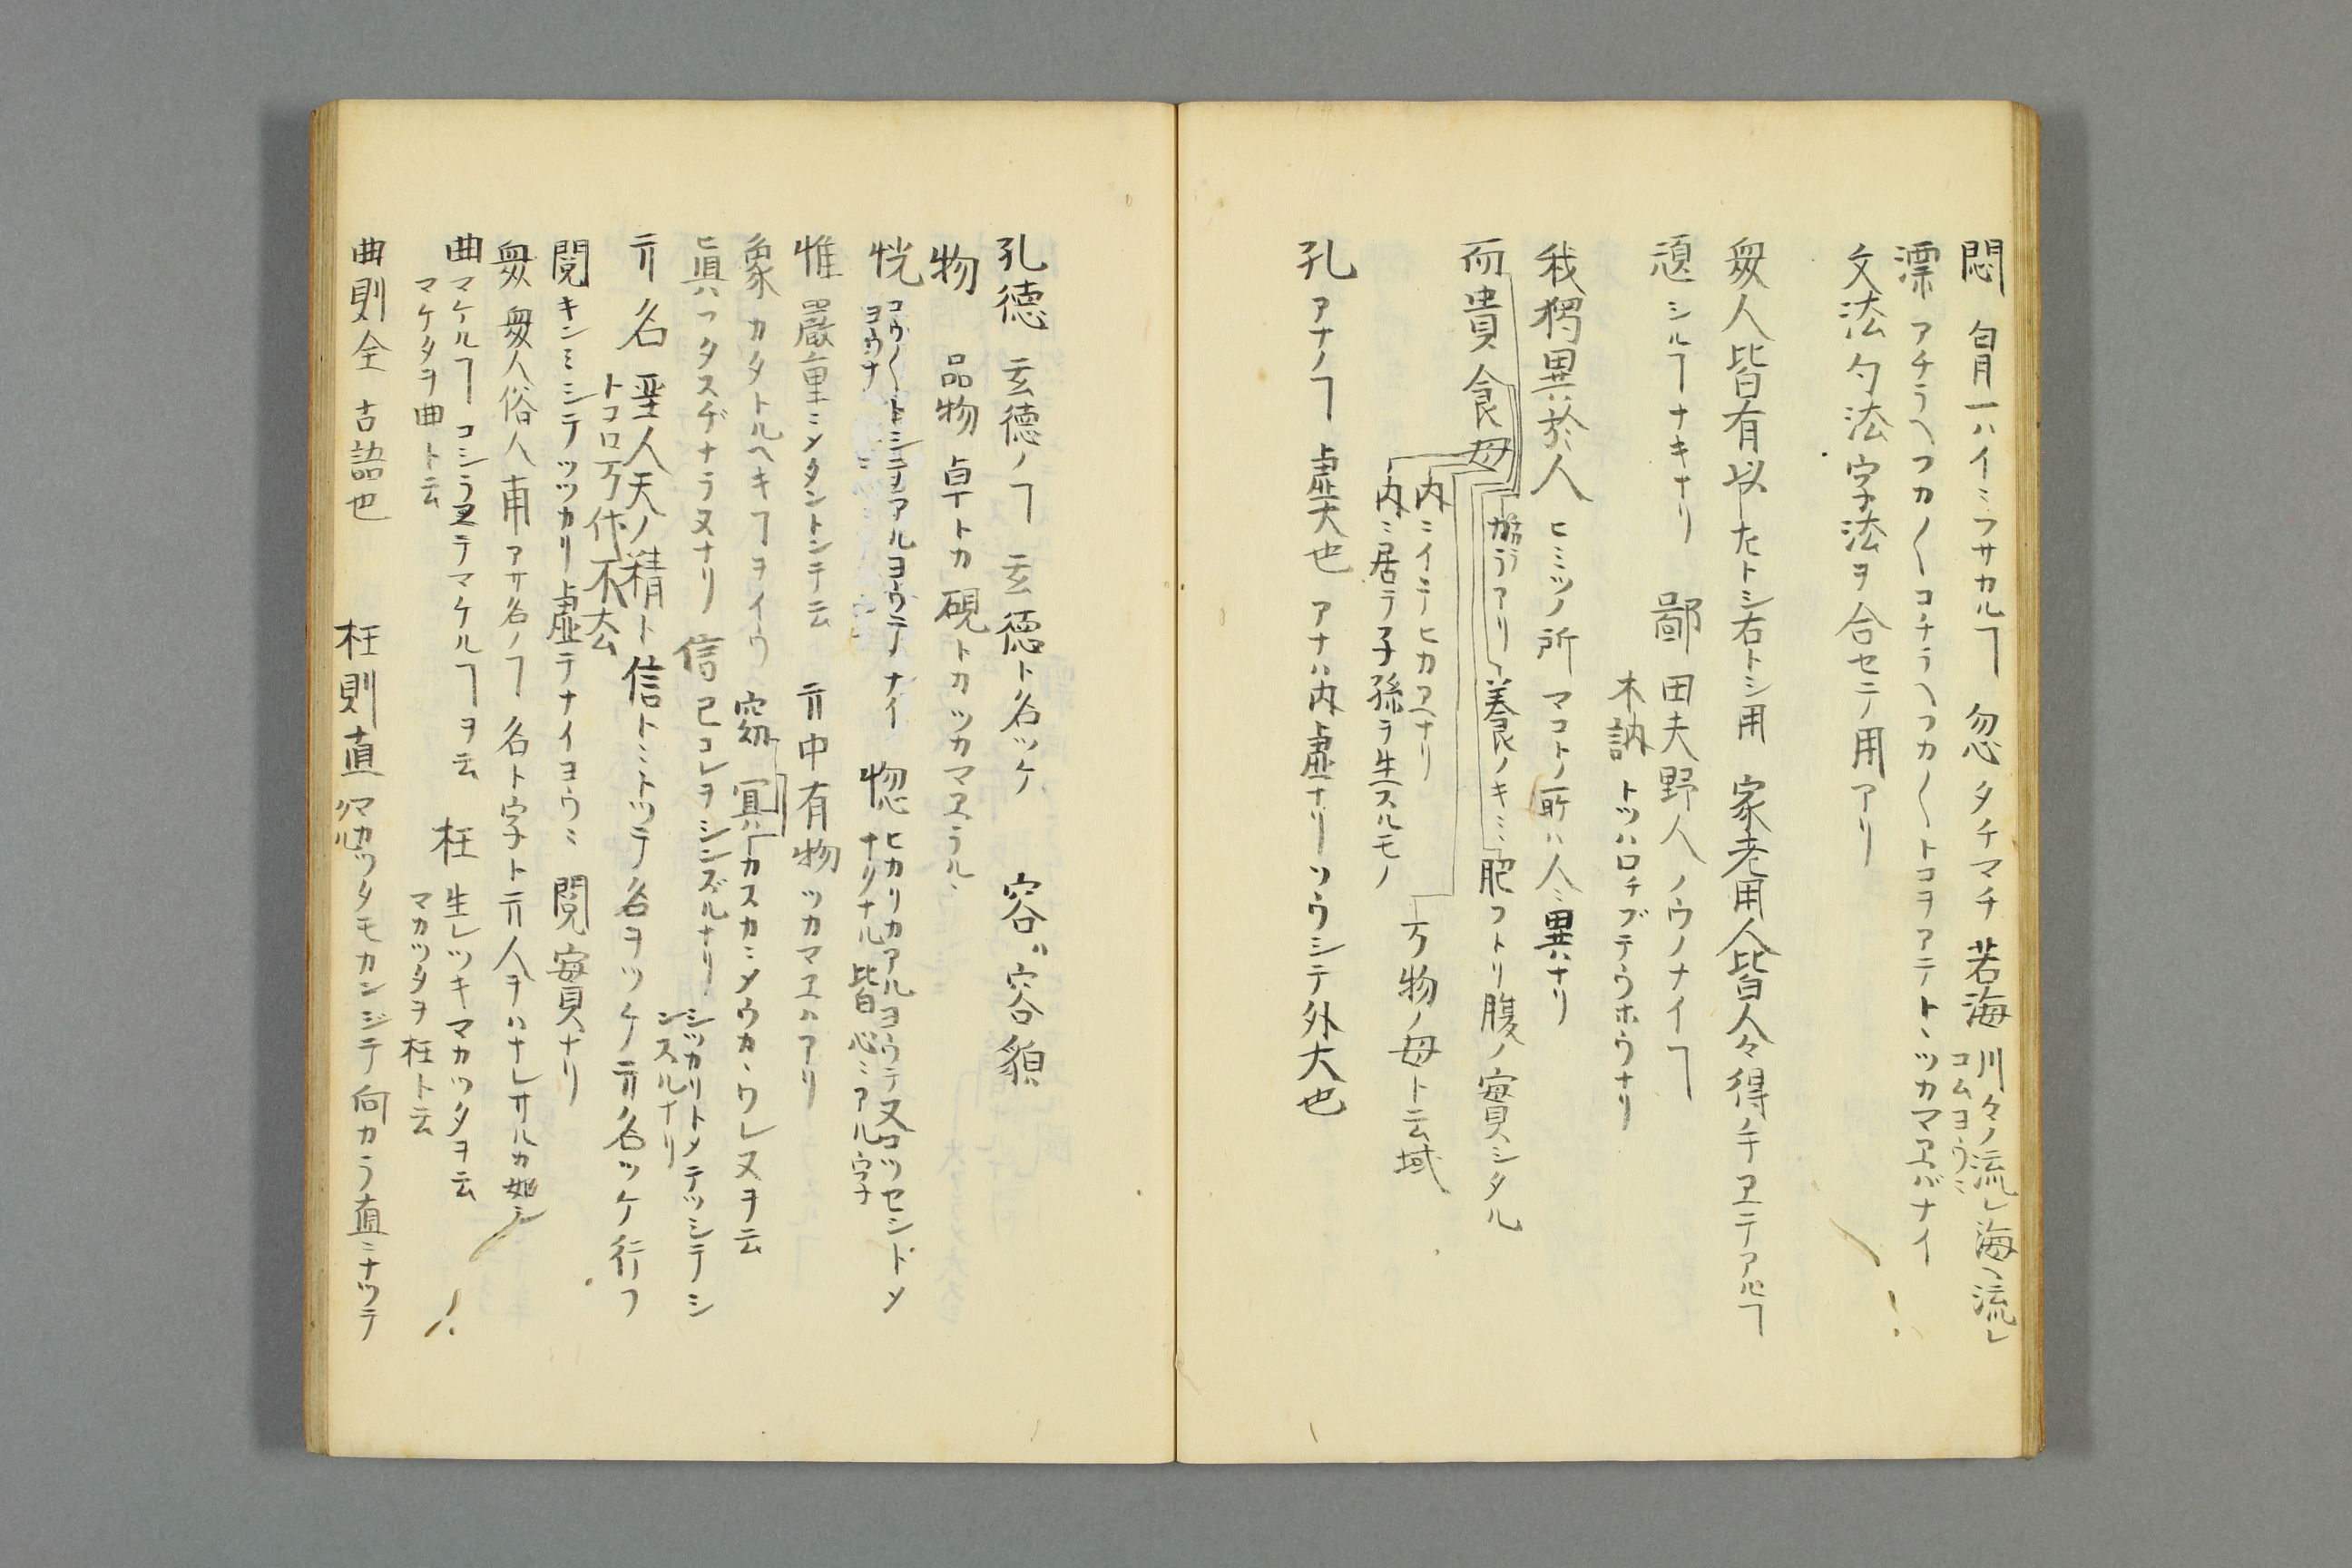 悶 胷一ハイニフサカルヿ 忽 タチマチ 若海 川々ノ流レ海ヘ流レ
コムヨウニ
漂 アチラヘフカ〱コチラヘフカ〱トコヲアテトヽツカマヱバナイ
文法 勺法 字法ヲ合セテノ用アリ
衆人皆有以 左トシ右トシ用 家老用人皆人々得ノ手ヱテアルヿ
頑 シルヿナキナリ 鄙 田夫野人ノウノナイヿ
木訥 トツハロチブテウホウナリ
我獨異於人 ヒミツノ所 マコトノ所ハ人ニ異ナリ
而貴食母 養ノキミ 肥フトリ腹ノ實シタル
内ニイテヒカヱナリ
内ニ居ラ子孫ヲ生スルモノ
万物ノ母ト云域
孔 アナノヿ 虚大也 アナハ内虚ナリソウシテ外大也
孔徳 玄徳ノヿ 玄徳ト名ツケ 容 容貌
物 品物 卓トカ硯トカツカマヱラル
恍 コウ〱トシテアルヨウテナイ 惚 ヒカリカアルヨウテ又コツセントメ
ヨウナ ナリナル皆心ニアル字ナ
惟 嚴重ニメタントシテ云 其中有物 ツカマヱハアリ
象 カタトルヘキヿヲイウ 窈冥 カスカニメウカヽウレヌヲ云
眞 フタスヂナラヌナリ 信 已コレヲシンズルナリ シツカリトメテツシテシ
ンスルナリ
其名 聖人天ノ精ト信トニトツテ名ヲツケ其名ツケ行フ
トコロ万代不去
閲 キンミシテツツカリ虚テナイヨウニ 閲實ナリ
衆 衆人俗人 甫 アサ名ノヿ 名ト字ト其人ヲハナレサルカ如シ
曲 マケルヿ コシラヱテマケルヿヲ云 枉 生レツキマカツタヲ云
マケタヲ曲ト云 マカツタヲ枉ト云
曲則全 古語也 枉則直 マカツタモカンジテ向カラ直ニナツテ